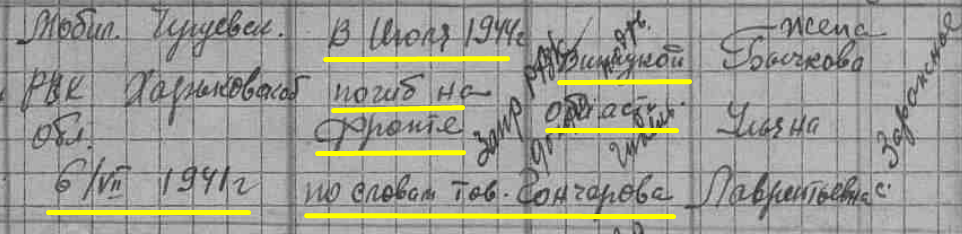 Мобил. Чугуевск. В Июля 1944г Винницкой жена
РВК Харьковской погиб на области Бычкова
Обл. фронте Ульяна
6/VII 1941г по словам тов. Гончарова Лаврентьевна
Запр РВК